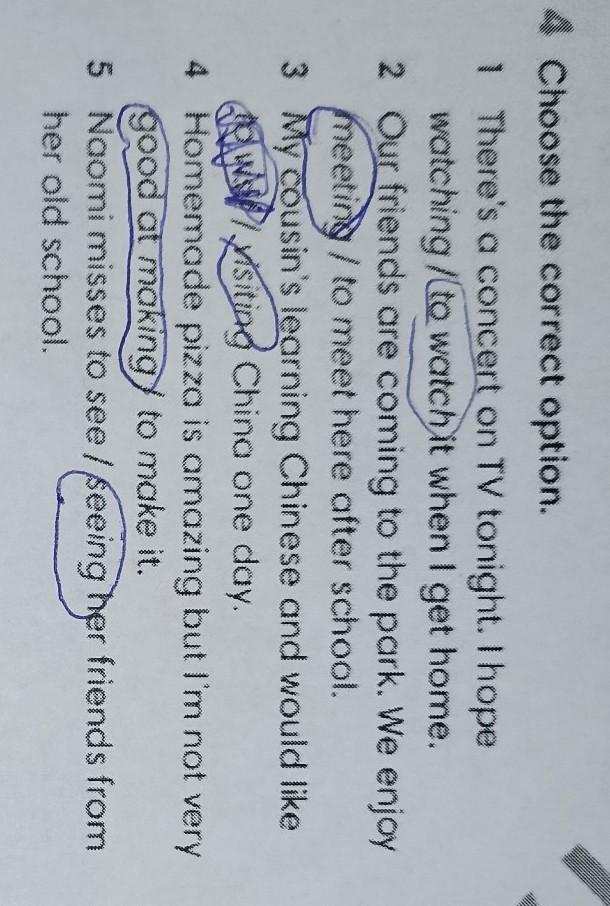 4 Choose the correct option.
1 There's a concert on TV tonight. I hope
watching / to watch it when I get home.
2 Our friends are coming to the park. We enjoy
meeting / to meet here after school.
3 My cousin's learning Chinese and would like
to visit / visiting China one day.
4 Homemade pizza is amazing but I'm not very
good at making / to make it.
5 Naomi misses to see / seeing her friends from
her old school.